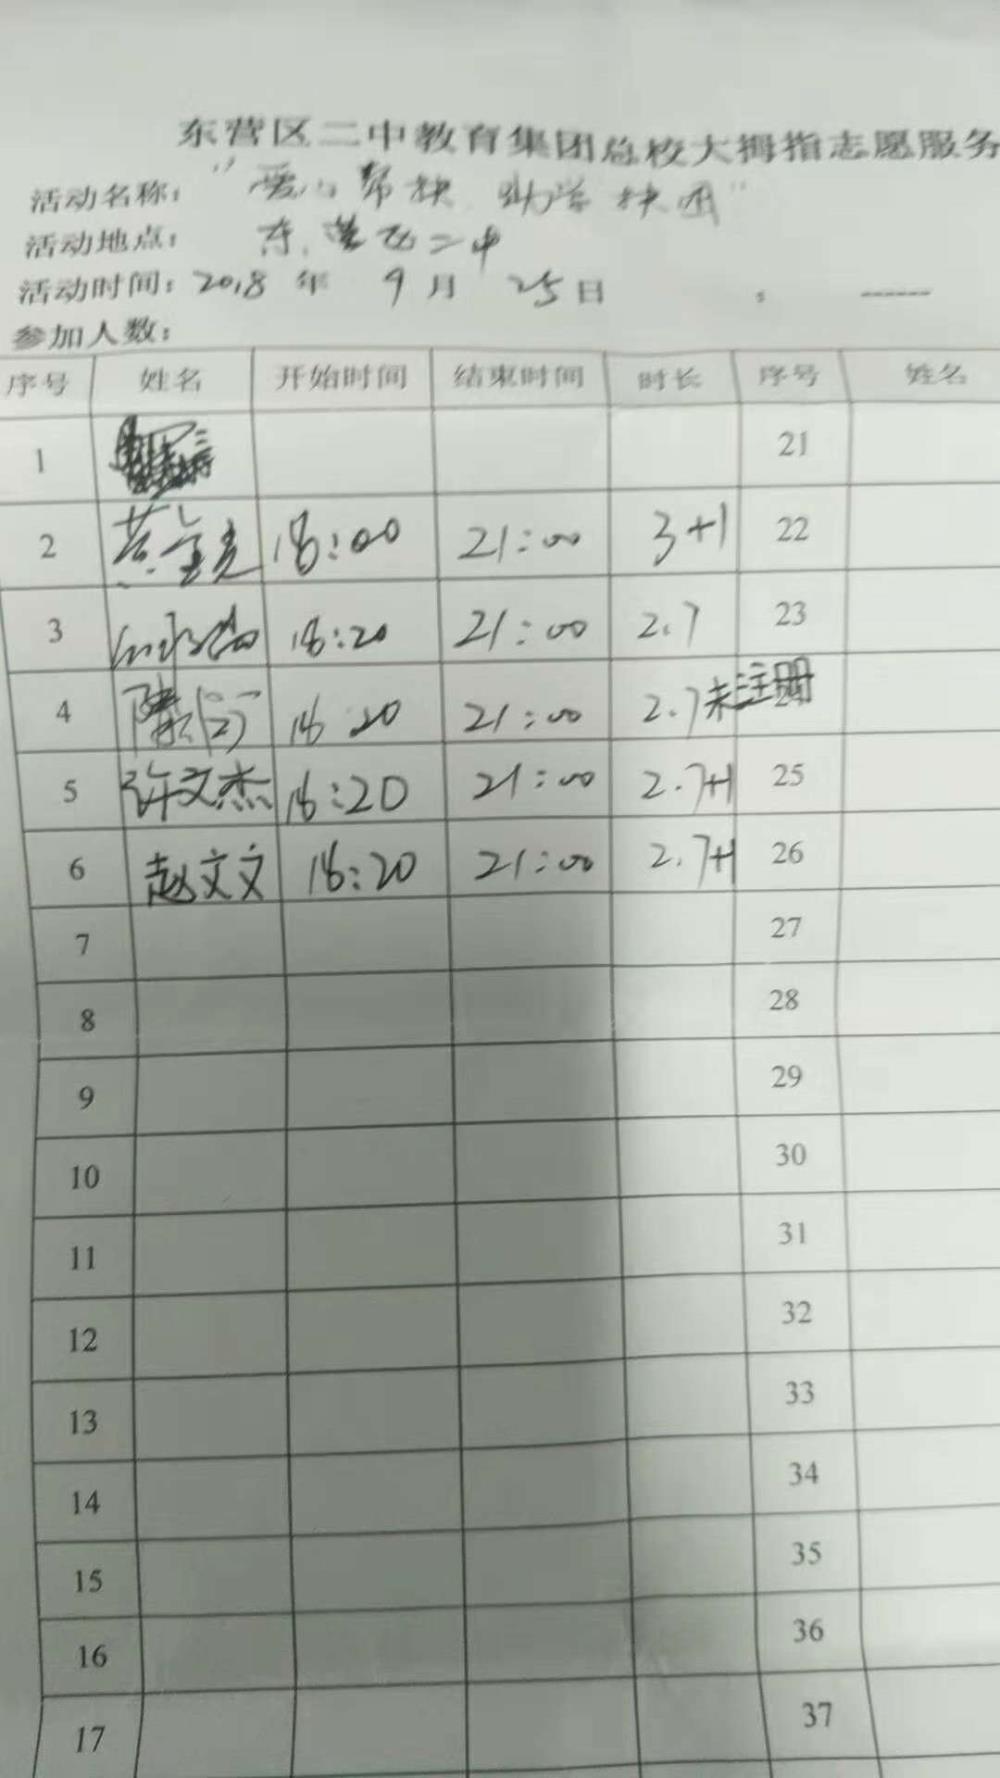 东营区二中教育集团总校大拇指志愿服务
活动名称： "爱心帮扶 助学扶困"
活动地点： 东营区二中
活动时间：2018 年 9 月 25日 ： ------
参加人数：
序号 姓名 开始时间 结束时间 时长 序号 姓名
1 21
2 18:00 21:00 3+1 22
3 18:20 21:00 2.7 23
4 18 20 21:00 2.7 未注册
5 许文杰 18:20 21:00 2.7+1 25
6 赵文文 18:20 21:00 2.7+1 26
7 27
8 28
9 29
10 30
11 31
12 32
13 33
14 34
15 35
16 36
17 37